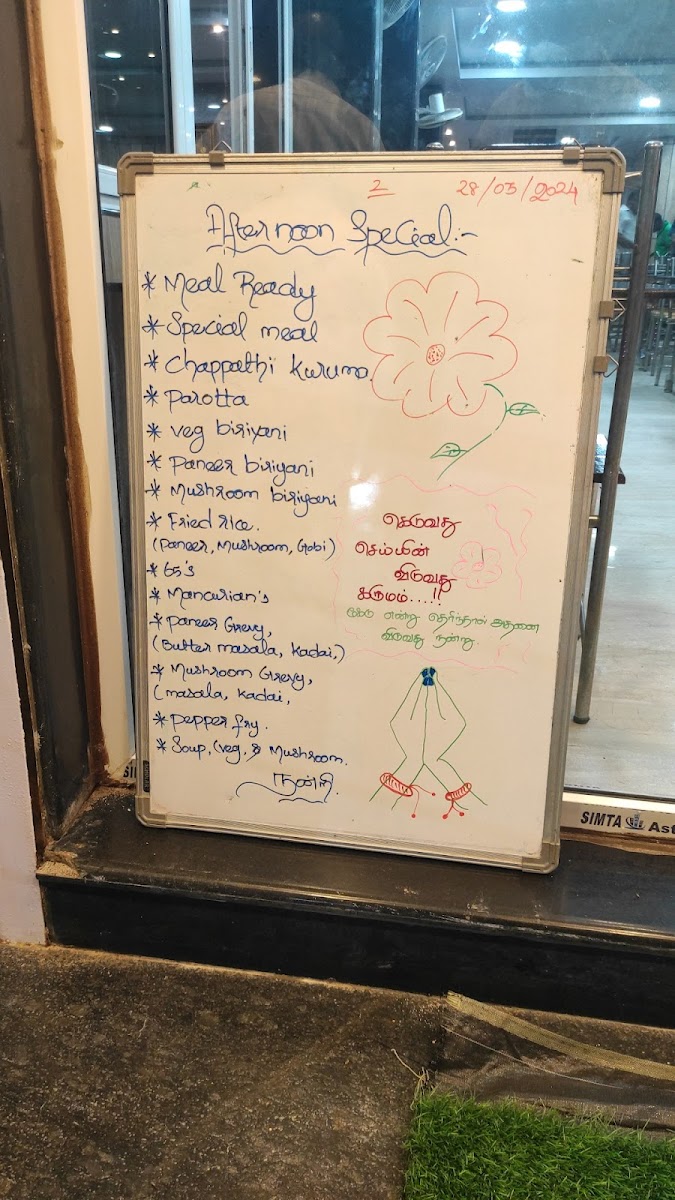 2
28/05/2024
Afternoon Special:-
* Meal Ready
* Special meal
* Chappathi Kuruma
* Parotta
* Veg biriyani
* Paneer biriyani
* Mushroom biriyani
* Fried rice.
(Paneer, Mushroom, Gobi)
* 65's
* Mancurian's
* Paneer Grevy,
(Butter masala, Kadai,)
* Mushroom Grevy,
(masala, Kadai,
* Pepper fry.
* Soup, (Veg, & Mushroom.
நன்றி.
கெடுவது
செய்யின்
விடுவது
கருமம்....!!
கேடு என்று தெரிந்தால் அதனை
விடுவது நன்று.
SIMTA Ast